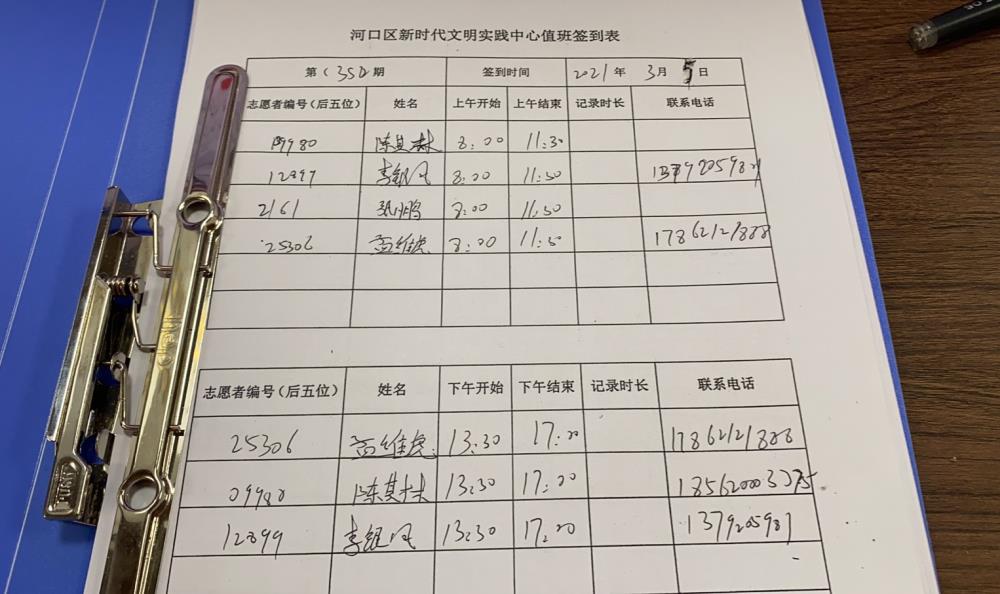 河口区新时代文明实践中心值班签到表
第（350期 签到时间 2021年 3月 5日
志愿者编号（后五位） 姓名 上午开始 上午结束 记录时长 联系电话
09980 陈其林 8:00 11:30
12899 李银风 8:00 11:30
2161 8:00 11:30
25306 孟维虎 8:00 11:30 17862121888
志愿者编号（后五位） 姓名 下午开始 下午结束 记录时长 联系电话
25306 孟维虎 13:30 17:00 17862121888
09980 陈其林 13:30 17:00
12899 李银风 13:30 17:00